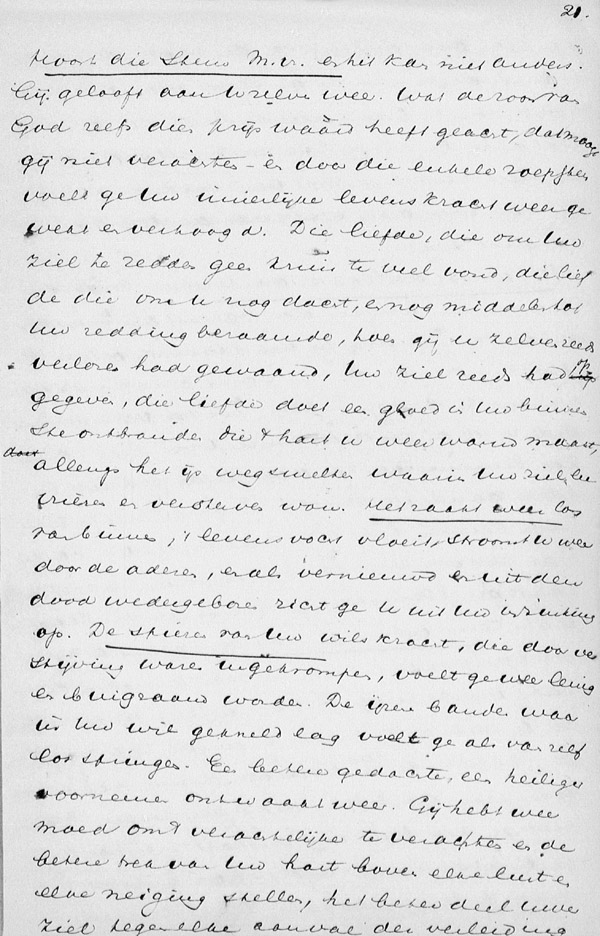 21.
Hoort die Stem M.V. en het kan niet anders.
Gij gelooft aan U zelve weer. Wat de zoon van
God reeds dien prijs waard heeft geacht, dat moogt
gij niet verachten - en door die enkele roepstem
voelt ge Uw innerlijke levenskracht weer ge
wekt en verhoogd. Die liefde, die om Uw
ziel te redden geen kruis te veel vond, die lief
de die om U nog dacht, en nog middelen tot
Uw redding beraamde, toen gij U zelven reeds
verloren had gewaand, Uw ziel reeds had
gegeven, die liefde doet een gloed in Uw binnen
ste ontbranden die 't hart U weer warm maakt,
allengs het ijs wegsmelten waarin Uw ziel
vriezen en versterven wou. Het raakt weer los
van binnen, 't levensvocht vloeit, stroomt U weer
door de aderen, en als vernieuwd en uit den
dood wedergeboren richt ge U uit Uw inzinking
op. De spieren van Uw wilskracht, die door ver
stijving waren ingekrompen, voelt ge weer lenig
en buigzaam worden. De ijzeren banden waar
in Uw wil gekneld lag voelt ge als van zelf
los springen. Een betere gedachte, een heiliger
voornemen ontwaakt weer. Gij hebt weer
moed om 't verachtelijke te verachten en de
betere trek van Uw hart boven elke lust en
elke neiging stellen, het betere deel Uwer
ziel tegen elke aanval der verleiding